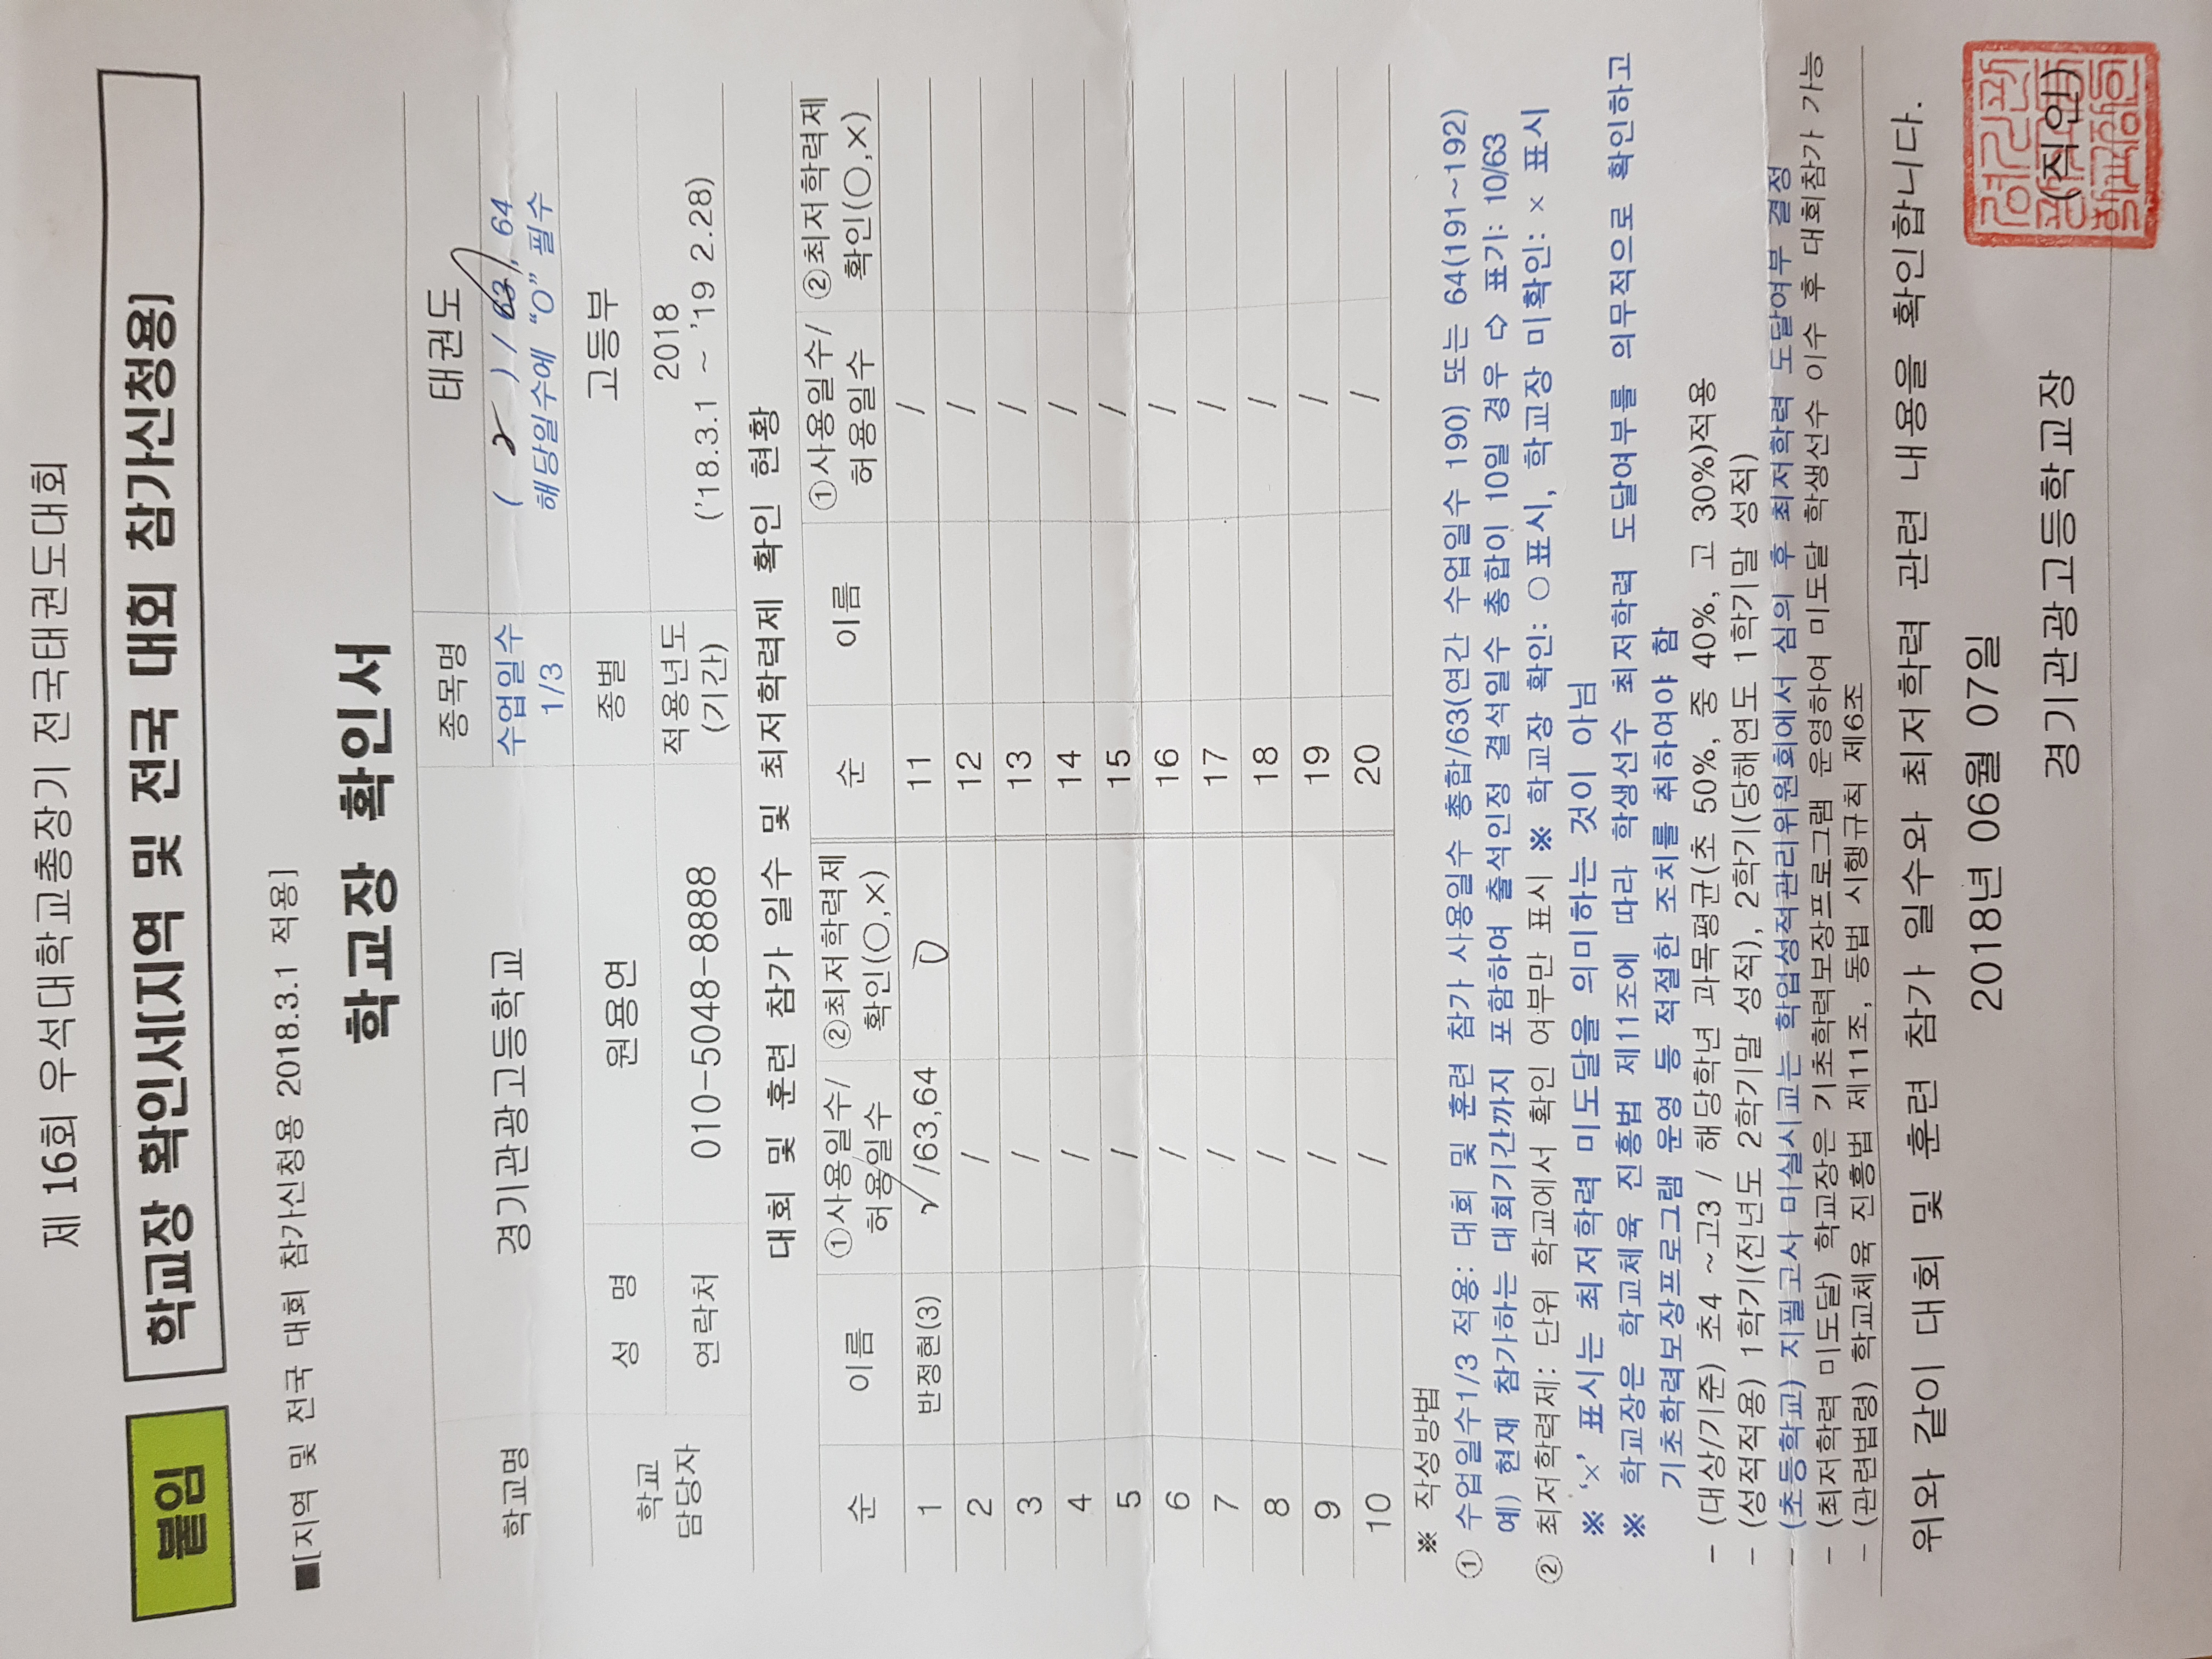 제 16회 우석대학교총장기 전국태권도대회
붙임
학교장 확인서[지역 및 전국 대회 참가신청용]
■[지역 및 전국 대회 참가신청용 2018.3.1 적용]
학교장 확인서
학교명 경기관광고등학교 종목명 태권도
수업일수 1/3 ( 2 ) / 63, 64
해당일수에 "O" 필수
학교 담당자 성 명 원용연 종별 고등부
연락처 010-5048-8888 적용년도 (기간) 2018 ('18.3.1 ~ '19 2.28)
대회 및 훈련 참가 일수 및 최저학력제 확인 현황
순 이름 ①사용일수/허용일수 ②최저학력제 확인(○,×) 순 이름 ①사용일수/허용일수 ②최저학력제 확인(○,×)
1 반정현(3) 2/63,64 O 11 /
2 / 12 /
3 / 13 /
4 / 14 /
5 / 15 /
6 / 16 /
7 / 17 /
8 / 18 /
9 / 19 /
10 / 20 /
※ 작성방법
① 수업일수1/3 적용: 대회 및 훈련 참가 사용일수 총합/63(연간 수업일수 190) 또는 64(191~192)
예) 현재 참가하는 대회기간까지 포함하여 출석인정 결석일수 총합이 10일 경우 ⇨ 표기: 10/63
② 최저학력제: 단위 학교에서 확인 여부만 표시 ※ 학교장 확인: ○표시, 학교장 미확인: × 표시
※ '×' 표시는 최저학력 미도달을 의미하는 것이 아님
※ 학교장은 학교체육 진흥법 제11조에 따라 학생선수 최저학력 도달여부를 의무적으로 확인하고
기초학력보장프로그램 운영 등 적절한 조치를 취하여야 함
- (대상/기준) 초4 ~고3 / 해당학년 과목평균(초 50%, 중 40%, 고 30%)적용
- (성적적용) 1학기(전년도 2학기말 성적), 2학기(당해연도 1학기말 성적)
- (초등학교) 지필고사 미실시교는 학업성적관리위원회에서 심의 후 최저학력 도달여부 결정
- (최저학력 미도달) 학교장은 기초학력보장프로그램 운영하여 미도달 학생선수 이수 후 대회참가 가능
- (관련법령) 학교체육 진흥법 제11조, 동법 시행규칙 제6조
위와 같이 대회 및 훈련 참가 일수와 최저학력 관련 내용을 확인합니다.
2018년 06월 07일
경기관광고등학교장 (직인)